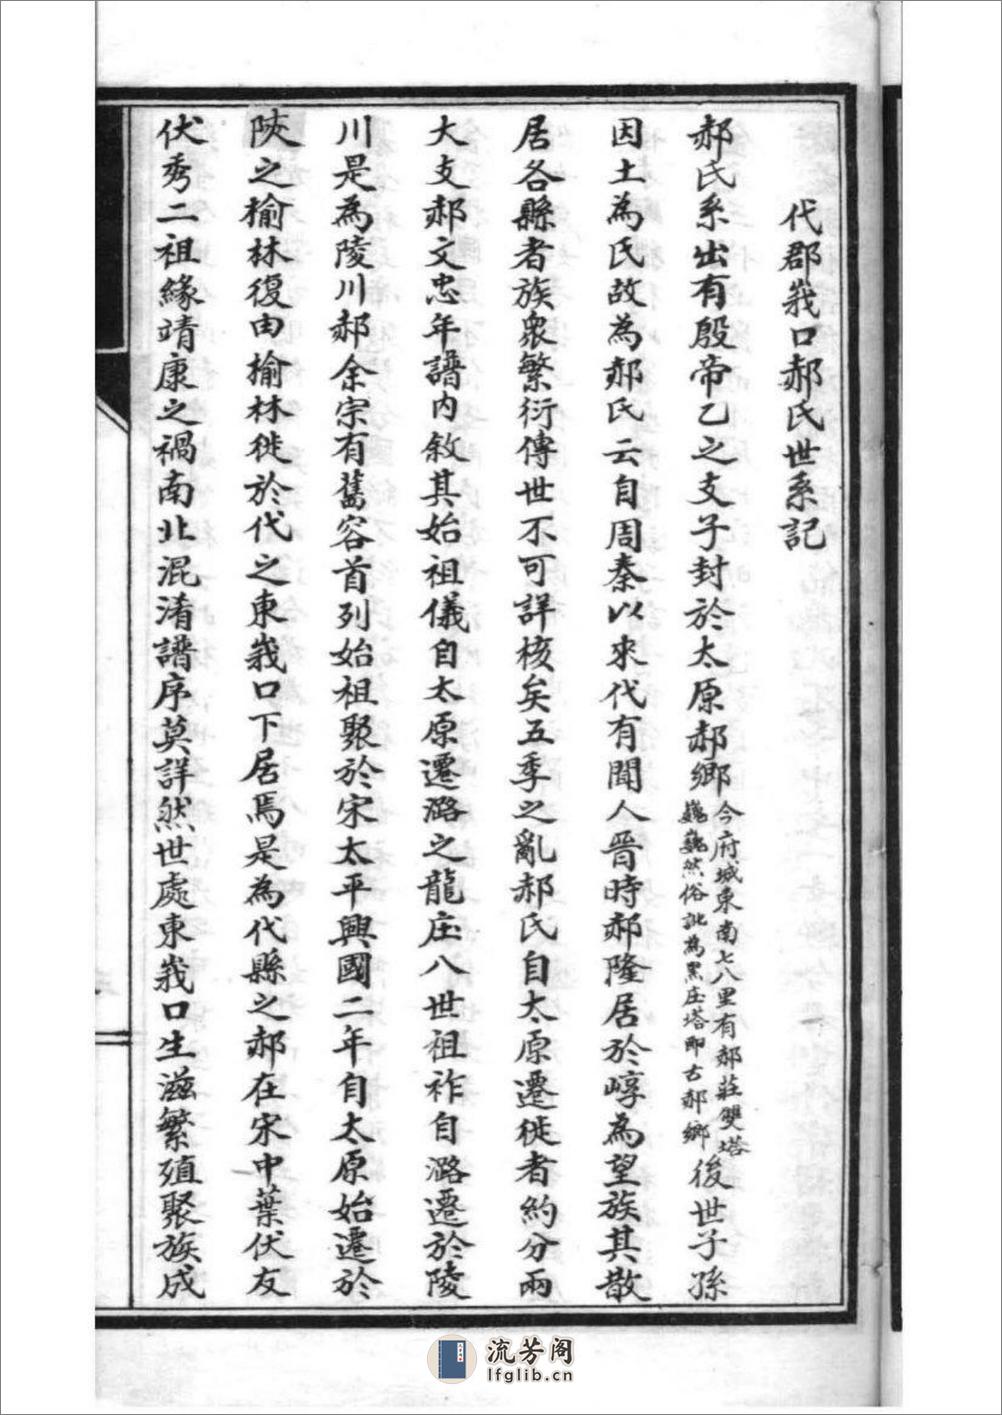 代郡峩口郝氏世系記
郝氏系出有殷帝乙之支子封於太原郝鄉今府城東南七八里有郝莊雙塔巍巍然俗訛為黑庄塔即古郝鄉後世子孫
因土為氏故為郝氏云自周秦以來代有聞人晉時郝隆居於崞為望族其散
居各縣者族衆繁衍傳世不可詳核矣五季之亂郝氏自太原遷徙者約分兩
大支郝文忠年譜內敘其始祖儀自太原遷潞之龍庄八世祖祚自潞遷於陵
川是為陵川郝余宗有舊容首列始祖聚於宋太平興國二年自太原始遷於
陝之榆林復由榆林徙於代之東峩口下居焉是為代縣之郝在宋中葉伏友
伏秀二祖緣靖康之禍南北混淆譜序莫詳然世處東峩口生滋繁殖聚族成
流芳阁
lfglib.cn